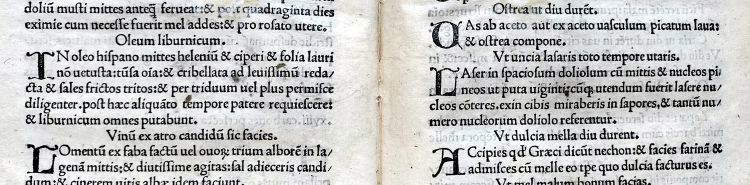 doliū musti mittes anteq̄ ferueat:& post quadraginta dies
eximie cum necesse fuerit mel addes:& pro rosato utere.
Oleum liburnicum.
IN oleo hispano mittes heleniū & ciperi & folia lauri
nō uetusta:tūsa oīa:& cribellata ad leuissimū reda/
cta & sales frictos tritos:& per triduum uel plus permisce
diligenter.post hæc aliquāto tempore patere requiescere:
& liburnicum omnes putabunt.
Vinū ex atro candidū sic facies.
LOmentū ex faba factū uel ouoꝝ trium alborē in la/
genā mittis:& diutissime agitas:sal adieceris candi/
dum:& cinerem uitis albæ idem faciunt.
Ostrea ut diu durēt.
OAs ab aceto aut ex aceto uasculum picatum laua:
& ostrea compone.
Vt uncia lasaris toto tempore utaris.
LAser in spaciosum doliolum cū mittis & nucleos pi/
neos ut puta uiginti:cūq utendum fuerit lasere nu/
cleos cōteres.exin cibis miraberis in sapores,& tantū nu/
mero nucleorum doliolo referentur.
Vt dulcia mella diu durent.
ACcipies qd' Græci dicūt nechon:& facies farinā &
admisces cū melle eo tpe quo dulcia facturus es.
Vt mel malum bonum facias.